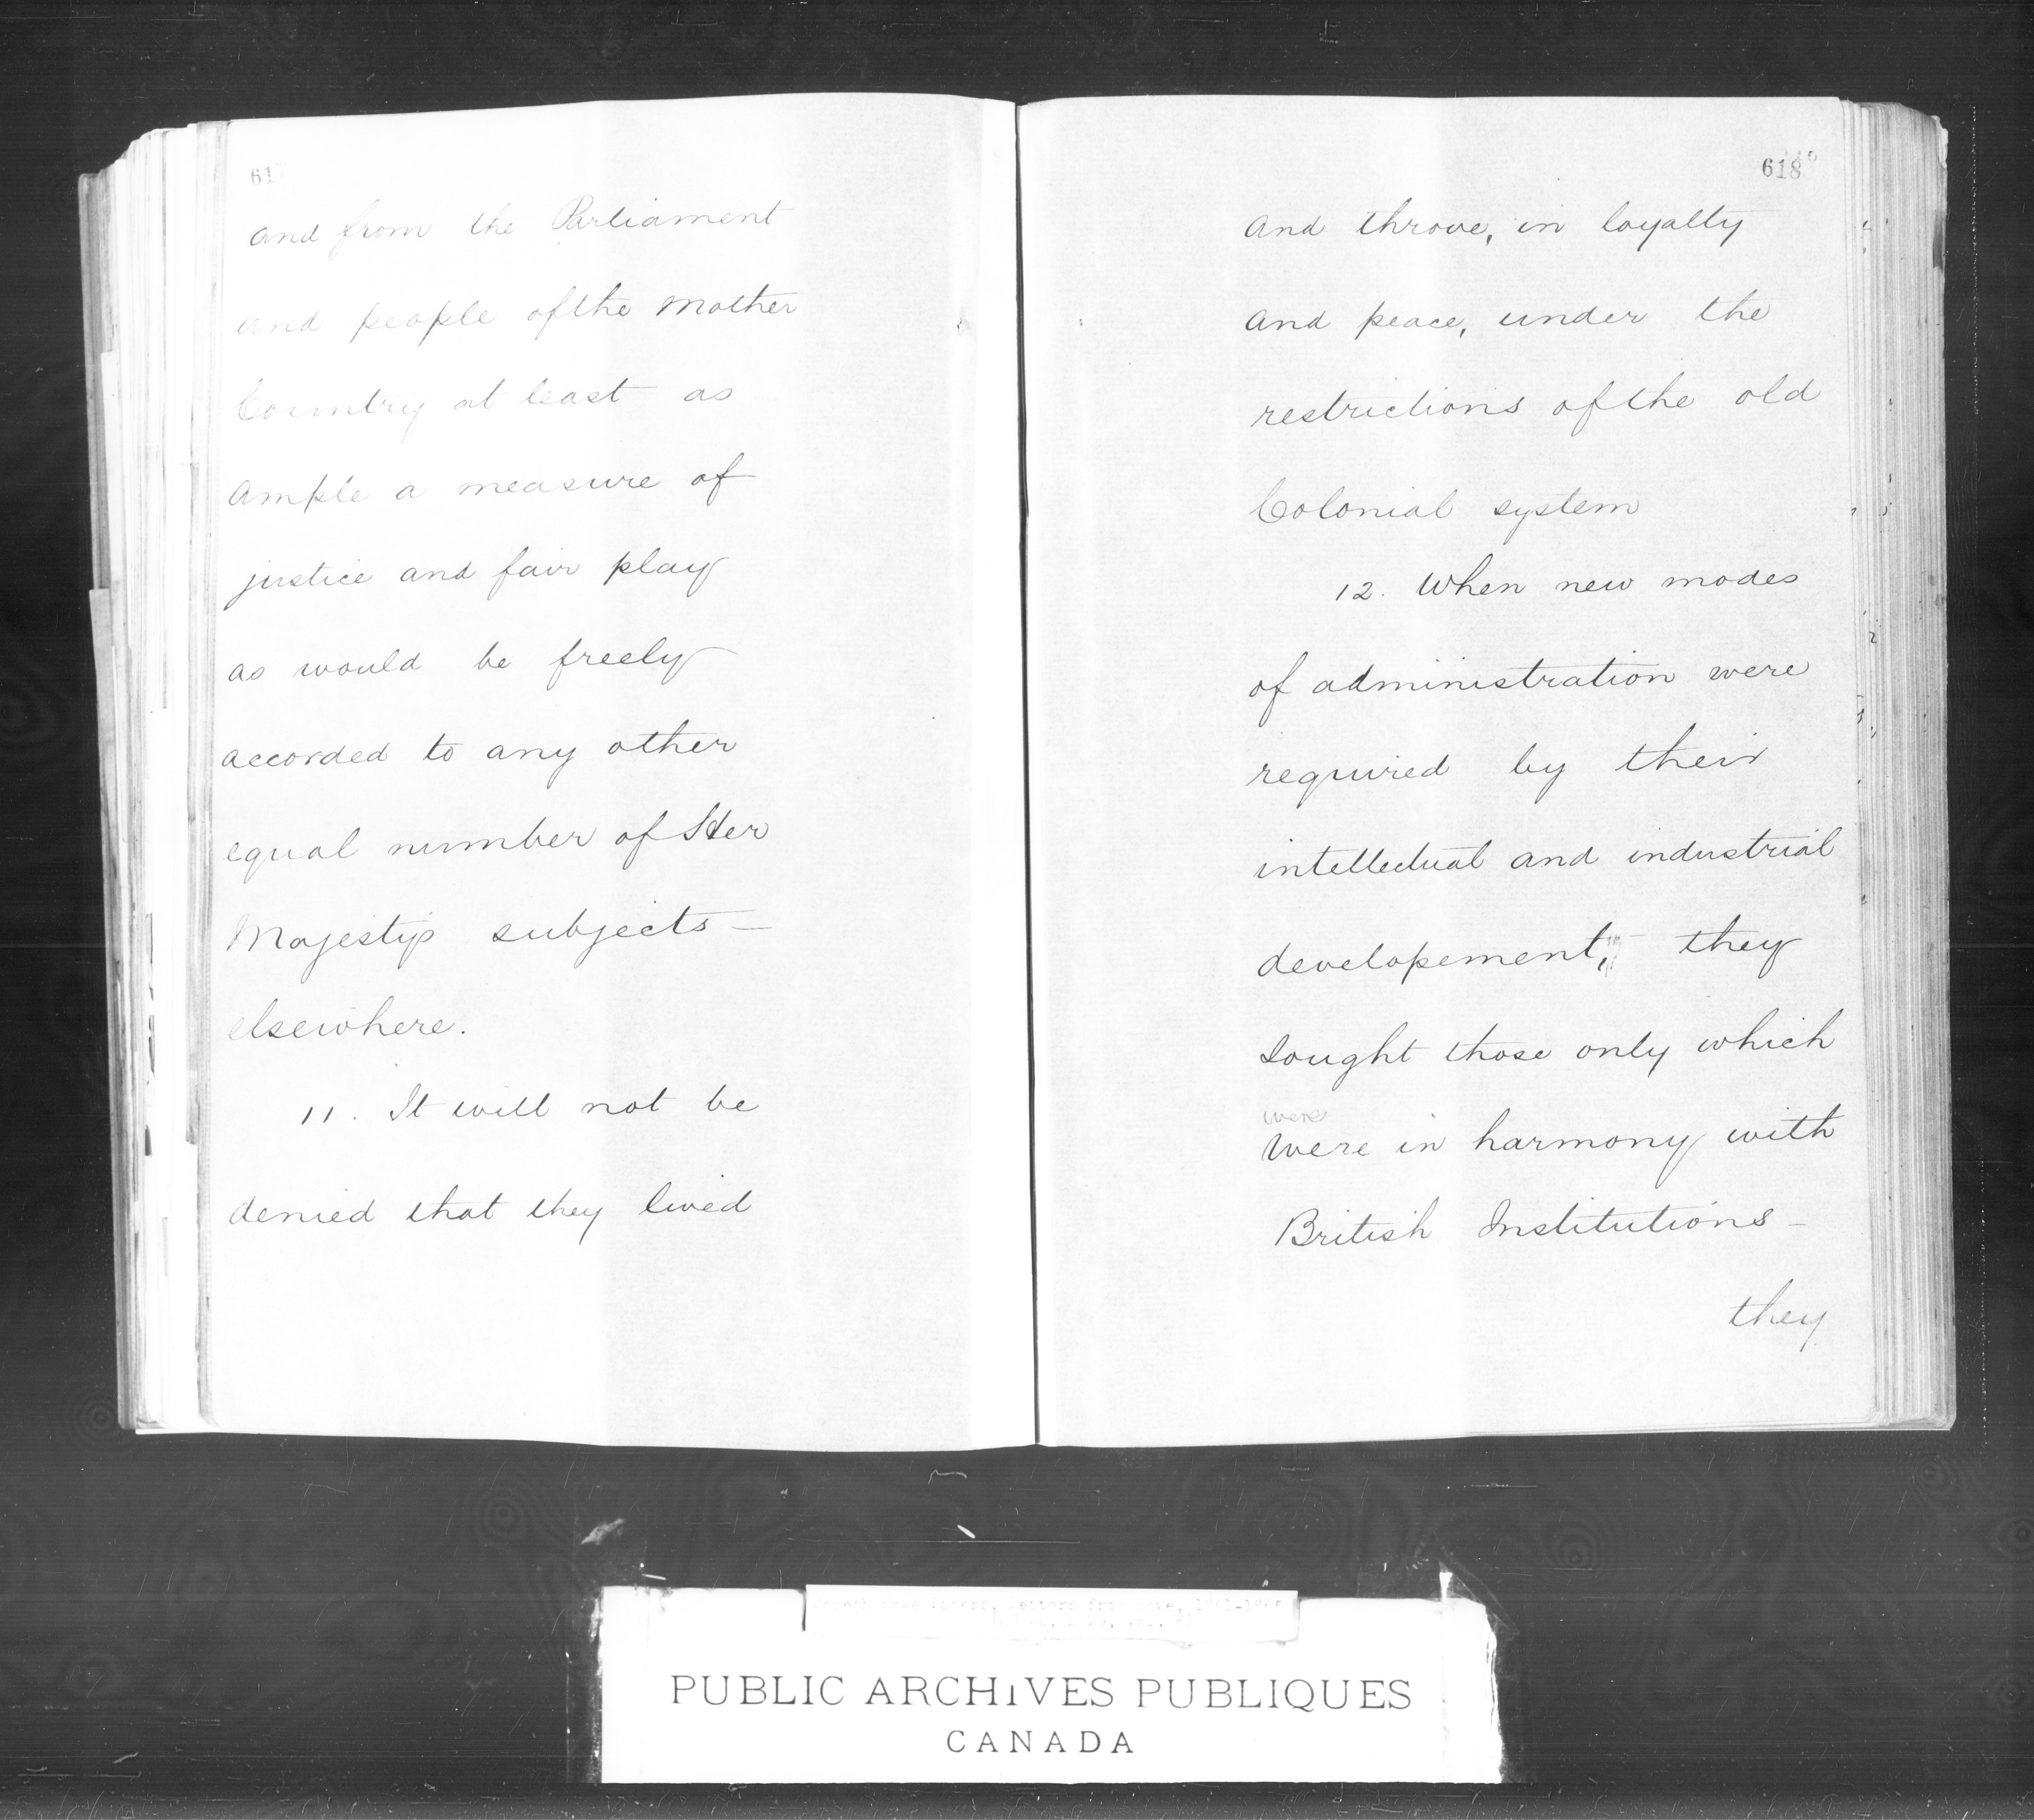 61
and from the Parliament
and people of the Mother
Country at least as
ample a measure of
justice and fair play
as would be freely
accorded to any other
equal number of Her
Majestys subjects —
elsewhere.
11. It will not be
denied that they lived
618
and throve, in loyalty
and peace, under the
restrictions of the old
Colonial system
12. When new modes
of administration were
required by their
intellectual and industrial
developement, they
sought those only which
were
were in harmony with
British Institutions –
they
Letters from Howe,
PUBLIC ARCHIVES PUBLIQUES
CANADA